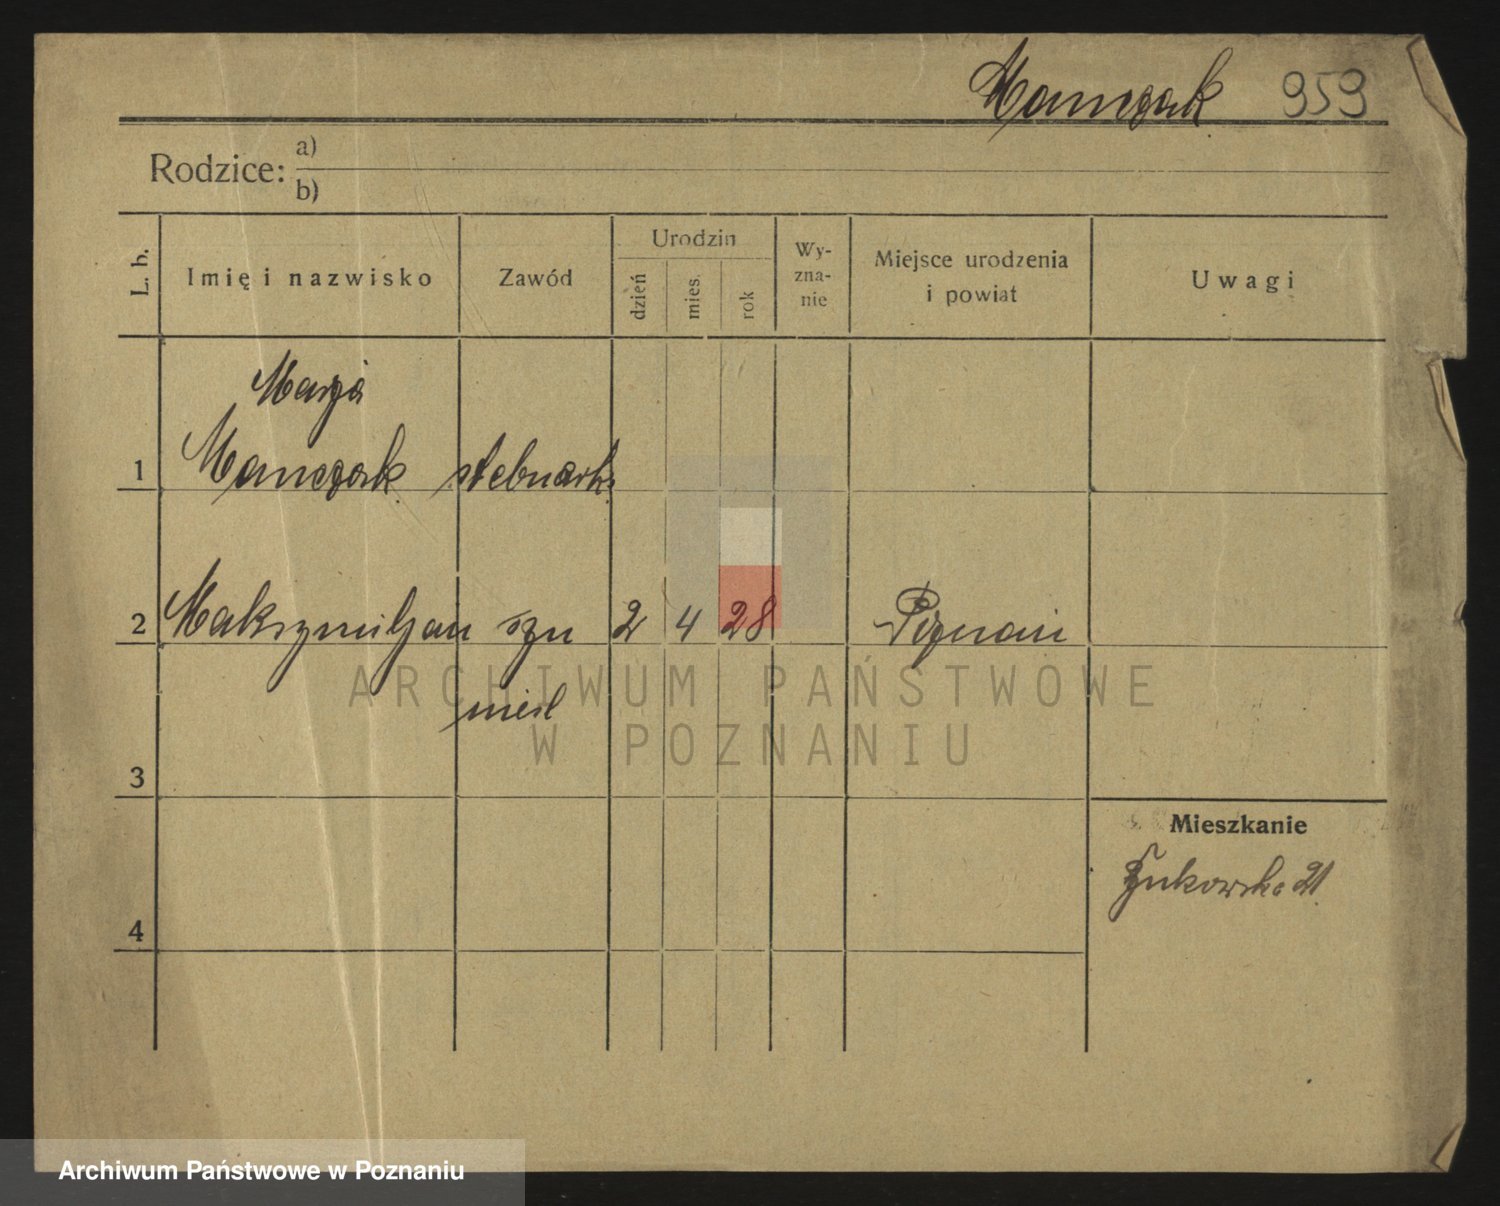 Manczak 959
Rodzice: a)
b)
L. b. Imię i nazwisko Zawód Urodzin dzień mies. rok Wy-zna-nie Miejsce urodzenia i powiat Uwagi
Marja
1 Manczak stebnark.
2 Maksymiljan syn 2 4 28 Poznań
nieśl
ARCHIWUM PAŃSTWOWE
W POZNANIU
3
Mieszkanie
Żukowska 21
4
Archiwum Państwowe w Poznaniu